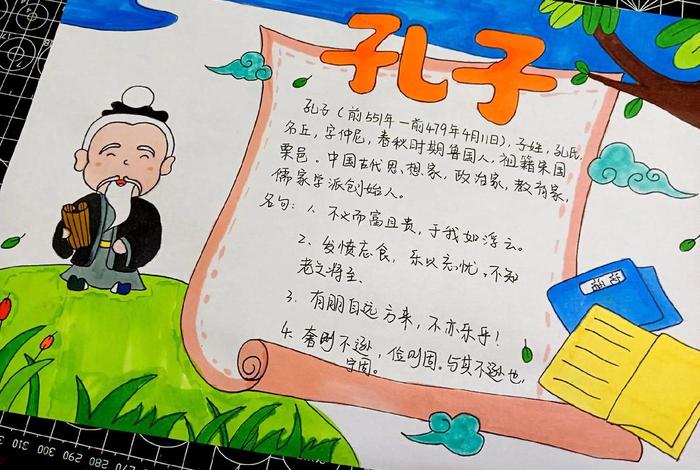 孔子
孔子(前551年-前479年4月11日),子姓,孔氏
名丘,字仲尼,春秋时期鲁国人,祖籍宋国
栗邑。中国古代思想家,政治家,教育家,
儒家学派创始人。
名句:1、不义而富且贵,于我如浮云。
2、发愤忘食,乐以忘忧,不知
老之将至
3、有朋自远方来,不亦乐乎!
4、奢则不逊,俭则固。与其不逊也,
宁固。
论语